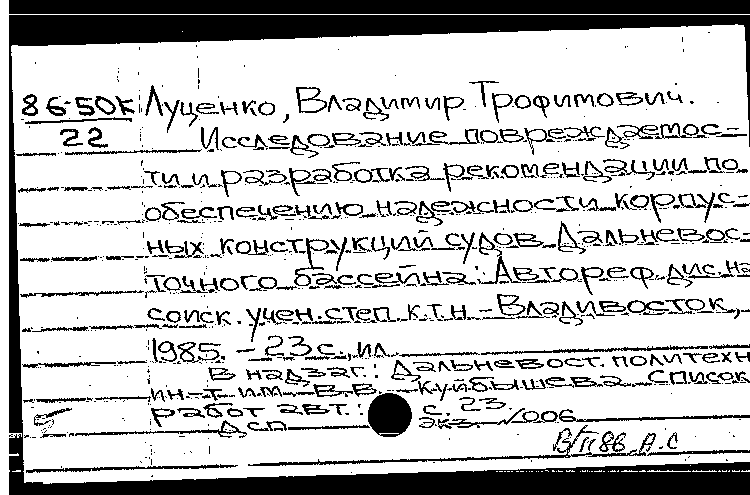 86-50К Луценко, Владимир Трофимович.
22 Исследование повреждаемос-
ти и разработка рекомендации по
обеспечению надежности корпус-
ных конструкций судов Дальневос-
точного бассейна: Автореф. дис. на
соиск. учен. степ. к.т.н. - Владивосток,
1985. - 23 с., ил
В надзаг.: Дальневост. политехн
ин-т им. В.В. Куйбышева Список
работ авт.: с. 23
ДСП экз. 1006
В/П 86 А.С